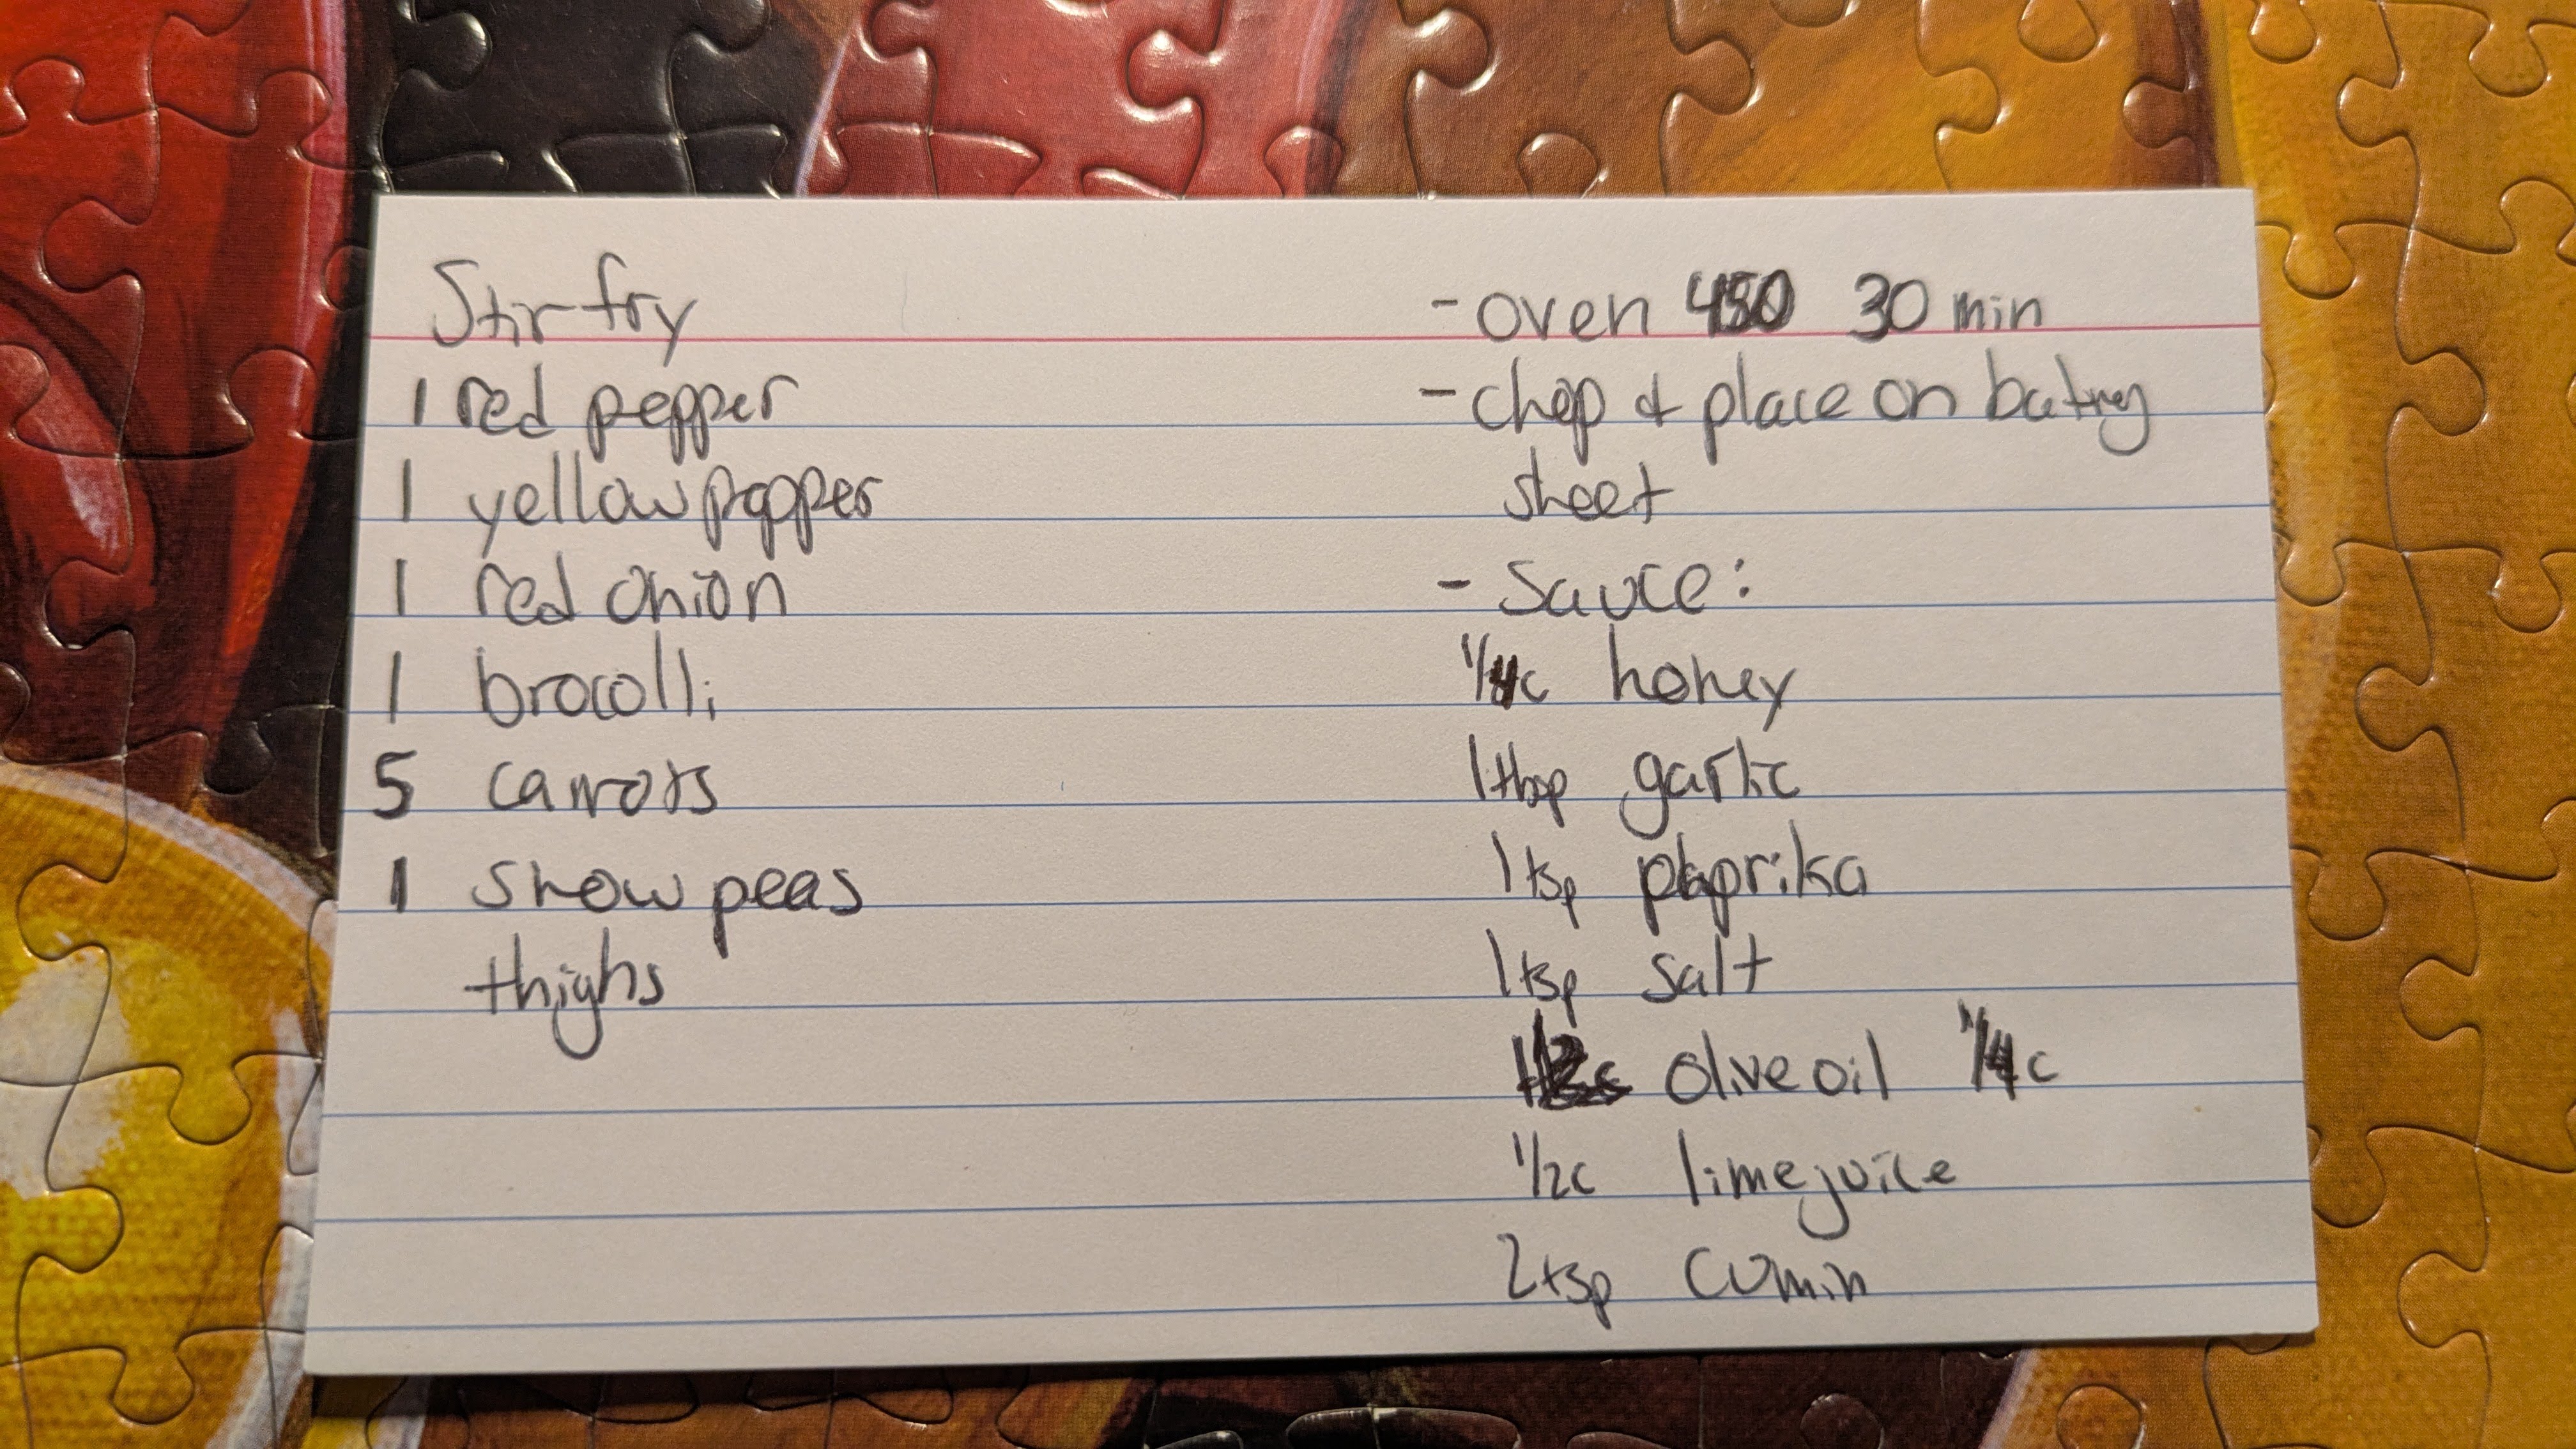 Stir fry
1 red pepper
1 yellow pepper
1 red onion
1 brocolli
5 carrots
1 snow peas
thighs
- oven 450 30 min
- chop & place on baking
sheet
- Sauce:
1/4c honey
1 tbsp garlic
1 tsp paprika
1 tsp salt
olive oil 1/4c
1/2c lime juice
2 tsp cumin